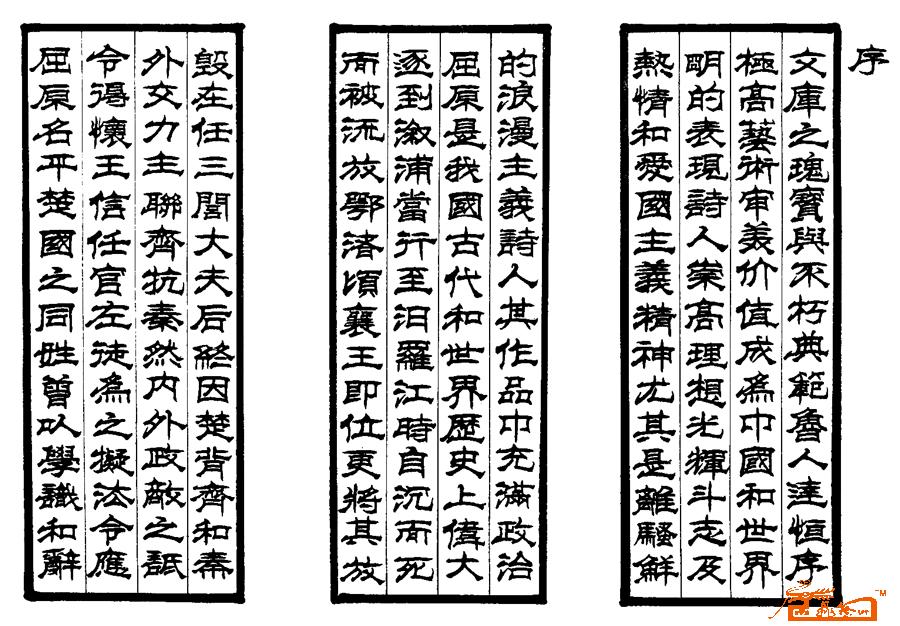 序
屈原名平楚國之同姓曾以學識和辭
令得懷王信任官左徒為之擬法令應
外交力主聯齊抗秦然内外政敵之詆
毀在任三閭大夫后終因楚背齊和秦
而被流放鄂渚頃襄王即位更將其放
逐到漵浦當行至汨羅江時自沉而死
屈原是我國古代和世界歷史上偉大
的浪漫主義詩人其作品中充滿政治
熱情和愛國主義精神尤其是離騷鮮
明的表現詩人崇高理想光輝斗志及
極高藝術审美价值成為中國和世界
文庫之瑰寶與不朽典範魯人達恒序